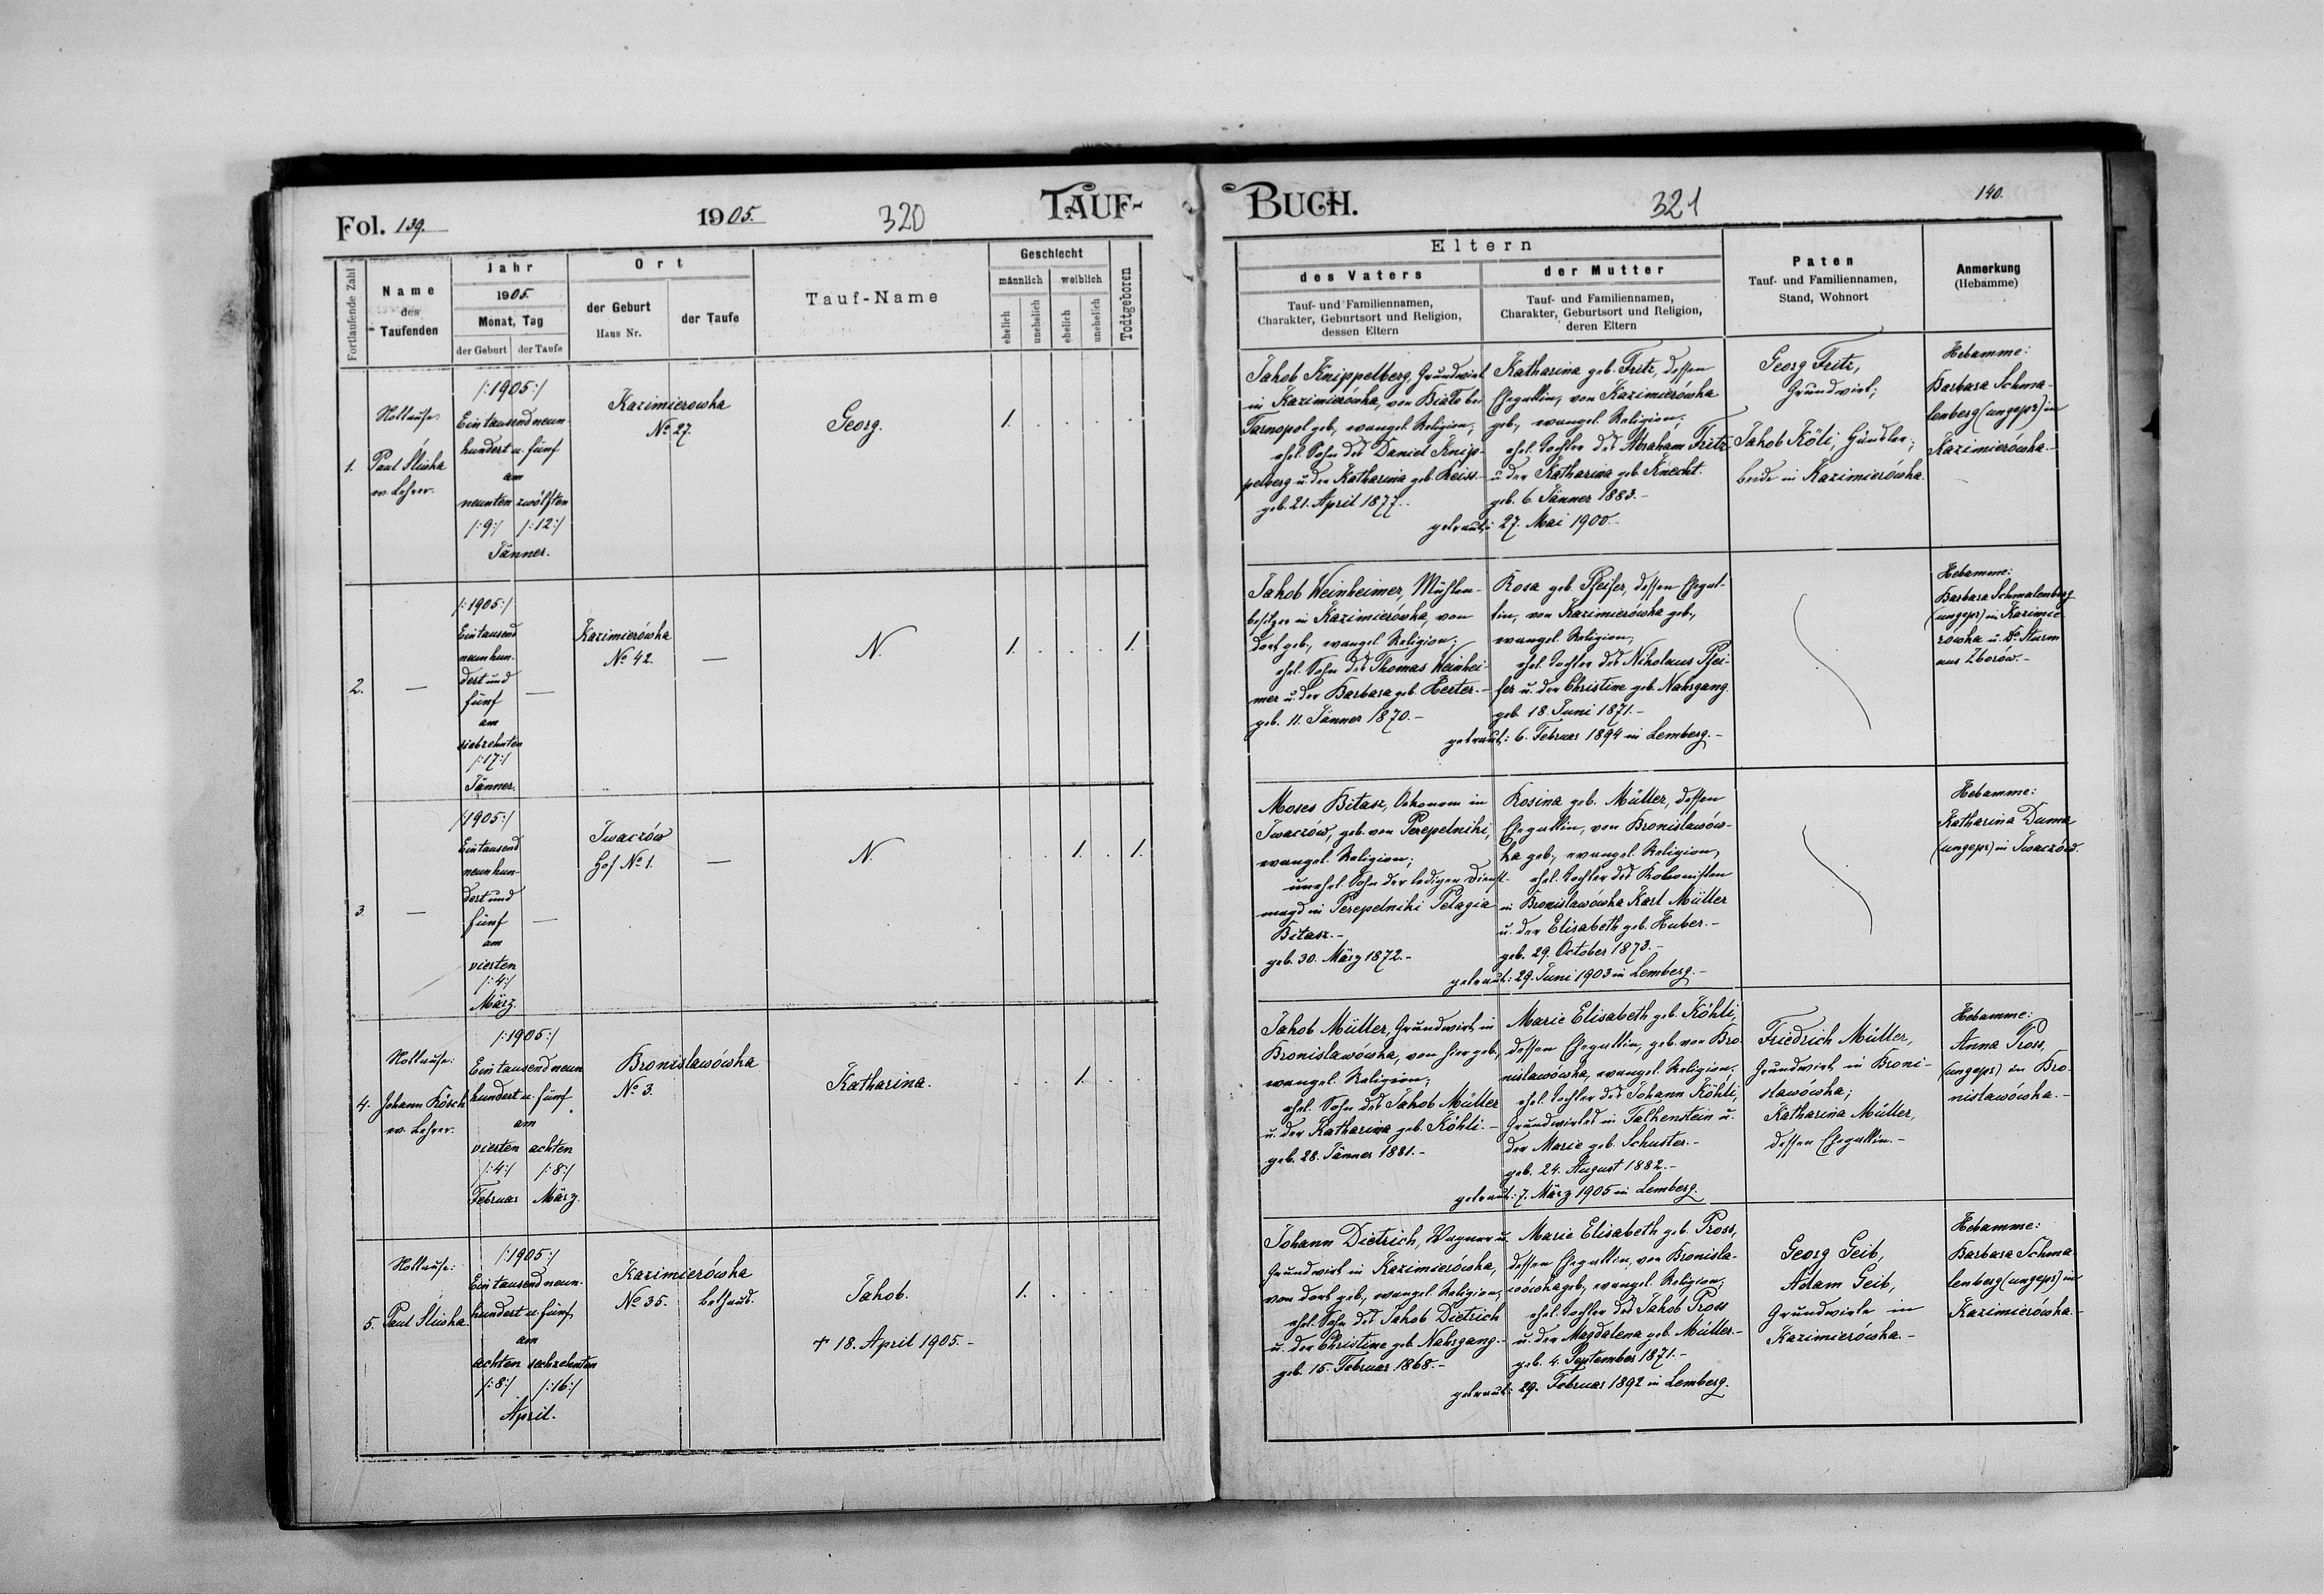 Fol. 139.
1905.
320
TAUF-
Fortlaufende Zahl
Name
des
Taufenden
Jahr
1905.
Monat, Tag
der Geburt
der Taufe
Ort
der Geburt
Haus Nr.
der Taufe
Tauf-Name
Geschlecht
männlich
weiblich
ehelich
unehelich
ehelich
unehelich
Todtgeboren
1.
Nottaufe:
Paul Sliwka
ev. Lehrer.
/:1905:/
Ein tausend neun
hundert u. fünf
am
neunten zwölften
/:9:/ /:12:/
Jänner.
Kazimierowka
No 27.
Georg.
1.
2.
—
/:1905:/
Ein tausend
neun hun-
dert und
fünf
am
siebzehnten
/:17:/
Jänner.
—
Kazimierówka
No 42.
—
N.
1.
1.
3.
—
/:1905:/
Ein tausend
neun hun-
dert und
fünf
am
vierten
/:4:/
März.
—
Iwaczów
Hof No 1.
—
N.
1.
1.
4.
Nottaufe:
Johann Kösch
ev. Lehrer.
/:1905:/
Ein tausend neun
hundert u. fünf
am
vierten achten
/:4:/ /:8:/
Februar März.
Bronislawówka
No 3.
Katharina.
1.
5.
Nottaufe:
Paul Sliwka.
/:1905:/
Ein tausend neun-
hundert u. fünf
am
achten sechzehnten
/:8:/ /:16:/
April.
Kazimierówka
No 35. Bethaus.
Jakob.
† 18. April 1905.-
1.
BUCH.
321
140.
Eltern
des Vaters
Tauf- und Familiennamen,
Charakter, Geburtsort und Religion,
dessen Eltern
der Mutter
Tauf- und Familiennamen,
Charakter, Geburtsort und Religion,
deren Eltern
Paten
Tauf- und Familiennamen,
Stand, Wohnort
Anmerkung
(Hebamme)
Jakob Knippelberg, Grundwirt
in Kazimierówka, von Biało bei
Tarnopol geb., evangel. Religion;
ehel. Sohn des Daniel Knip-
pelberg u. der Katharina geb. Reiss.-
geb. 21. April 1877.-
Katharina geb. Fritz, dessen
Ehegattin, von Kazimierówka
geb., evangel. Religion;
ehel. Tochter des Abraham Fritz
u. der Katharina geb. Knecht.
geb. 6. Jänner 1883.-
getraut: 27. Mai 1900.-
Georg Fritz,
Grundwirt;
Jakob Köli, Händler;
beide in Kazimierówka.
Hebamme:
Barbara Schma-
lenberg (ungepr) in
Kazimierówka.-
Jakob Weinheimer, Mühlen-
besitzer in Kazimierówka, von
dort geb., evangel. Religion;
ehel. Sohn des Thomas Weinhei-
mer u. der Barbara geb. Herter.-
geb. 11. Jänner 1870.-
Rosa geb. Pfeifer, dessen Ehegat-
tin, von Kazimierówka geb.,
evangel. Religion;
ehel. Tochter des Nikolaus Pfei-
fer u. der Christine geb. Nahrgang.
geb. 18. Juni 1871.-
getraut: 6. Februar 1894 in Lemberg.-
Hebamme:
Barbara Schmalenberg
(ungepr) in Kazimie-
rówka u. Dr Sturm
aus Zborów.-
Moses Bitasz, Oekonom in
Iwaczów, geb. von Perepelniki,
evangel. Religion;
unehel. Sohn der ledigen Dienst-
magd in Perepelniki Pelagia
Bitasz.-
geb. 30. März 1872.-
Rosina geb. Müller, dessen
Ehegattin, von Bronislawów-
ka geb., evangel. Religion,
ehel. Tochter des Kolonisten
in Bronislawówka Karl Müller
u. der Elisabeth geb. Huber.-
geb. 29. October 1873.-
getraut: 29. Juni 1903 in Lemberg.-
Hebamme:
Katharina Duma
(ungepr) in Iwaczów.
Jakob Müller, Grundwirt in
Bronislawówka, von hier geb.,
evangel. Religion;
ehel. Sohn des Jakob Müller
u. der Katharina geb. Köhli.-
geb. 28. Jänner 1881.-
Marie Elisabeth geb. Köhli,
dessen Ehegattin, geb. von Bro-
nislawówka, evangel. Religion,
ehel. Tochter des Johann Köhli,
Grundwirtes in Falkenstein u.
der Marie geb. Schuster.-
geb. 24. August 1882.-
getraut: 7. März 1905 in Lemberg.
Friedrich Müller,
Grundwirt in Broni-
slawówka;
Katharina Müller,
dessen Ehegattin.-
Hebamme:
Anna Pross,
(ungepr) in Bro-
nislawówka.-
Johann Dietrich, Wagner u.
Grundwirt in Kazimierówka,
von dort geb., evangel. Religion;
ehel. Sohn des Jakob Dietrich
u. der Christine geb. Nahrgang.-
geb. 15. Februar 1868.-
Marie Elisabeth geb. Pross,
dessen Ehegattin, von Bronisla-
wówka geb., evangel. Religion;
ehel. Tochter des Jakob Pross
u. der Magdalena geb. Müller.-
geb. 4. September 1871.-
getraut: 29. Februar 1892 in Lemberg.
Georg Geib,
Adam Geib,
Grundwirte in
Kazimierówka.-
Hebamme:
Barbara Schma-
lenberg (ungepr) in
Kazimierówka.-